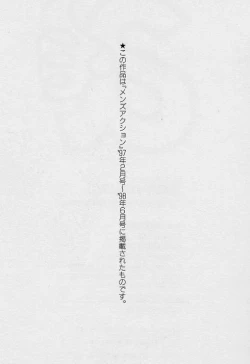 ★この作品は、『メンズアクション』'97年2月号ー'98年6月号に掲載されたものです。